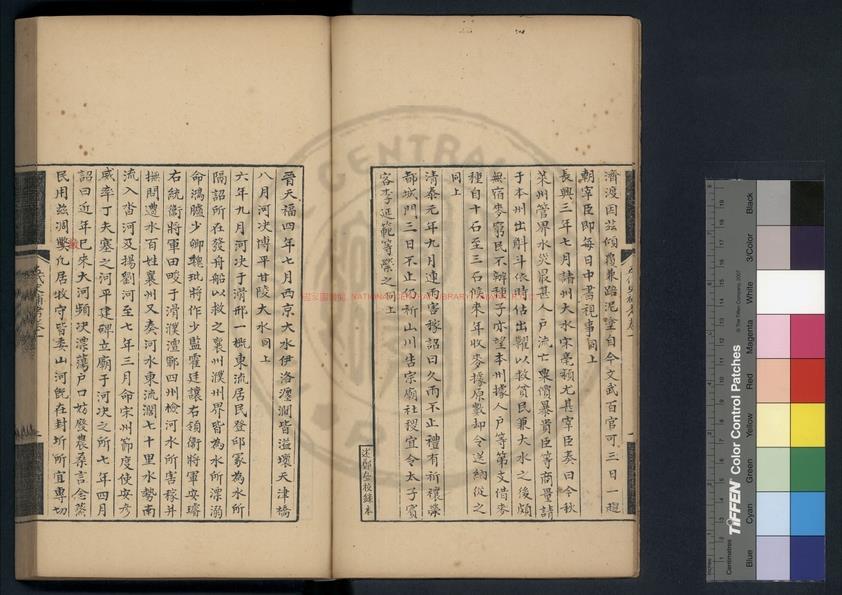 濟渡因茲傾覆兼路泥塗自今文武百官可三日一趨
朝宰臣即每日中書視事同上
長興三年七月諸州大水宋亳潁尤甚宰臣奏曰今秋
宋州管界水災最甚人戶流亡粟價暴貴臣等商量請
于本州出斛斗依時估出糶以救貧民兼大水之後頗
無宿麥窮民不辦種子亦望本州據人戶等第支借麥
種自十石至三石候來年收麥據原數却令送納從之
同上
清泰元年九月連雨害稼詔曰久雨不止禮有祈禳禜
都城門三日不止乃祈山川告宗廟社稷宜令太子賓
客李延範等禜之同上
晉天福四年七月西京大水伊洛瀍澗皆溢壞天津橋
八月河決博平甘陵大水同上
六年九月河決于滑邢一槪東流居民登邱冢為水所
隔詔所在發舟船以救之襄州濮州界皆為水所漂溺
命鴻臚少卿魏玭將作少監霍廷讓右領衞將軍安濬
右統衞將軍田峻于滑濮澶鄆四州檢河水所害稼并
撫問遭水百姓襄州又奏河水東流濶七十里水勢南
流入沓河及揚劉河至七年三月命宋州節度使安彥
威率丁夫塞之河平建碑立廟于河決之所七年四月
詔曰近年已來大河頻決漂蕩戶口妨廢農桑言念蒸
民用茲凋獘凡居牧守皆委山河旣在封圻所宜專切
NATIONAL CENTRAL LIBRARY
CENTRAL
校錄本
TIFFEN Color Control Patches
© The Tiffen Company, 2007
Centimetres
Blue
Cyan
Green
Yellow
Red
Magenta
White
3/Color
Black